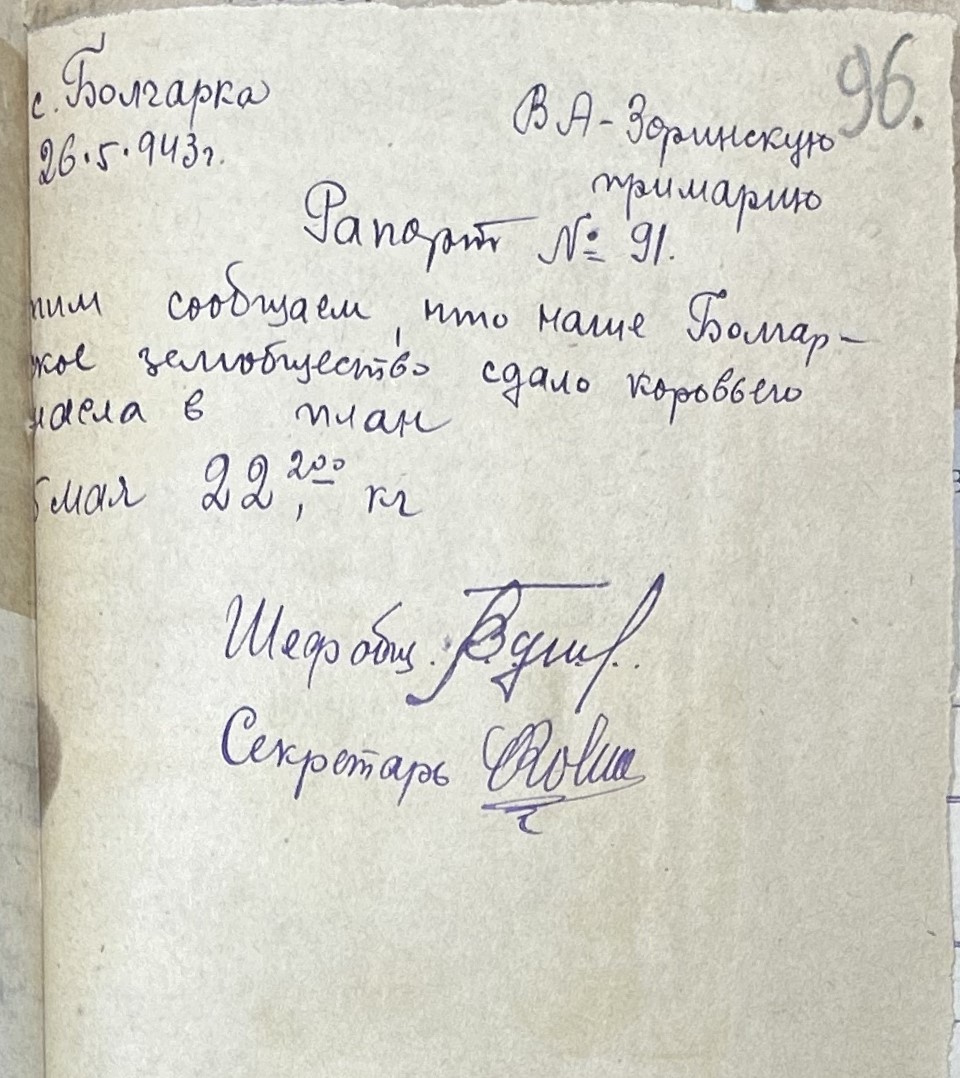 96.
с. Болгарка
26.5.943г.
В А-Зоринскую
примарию
Рапорт № 91.
тим сообщаем, что наше Болгар-
ское земобщество сдало коровьего
масла в план
мая 22,200 кг
Шеф общ.
Секретарь